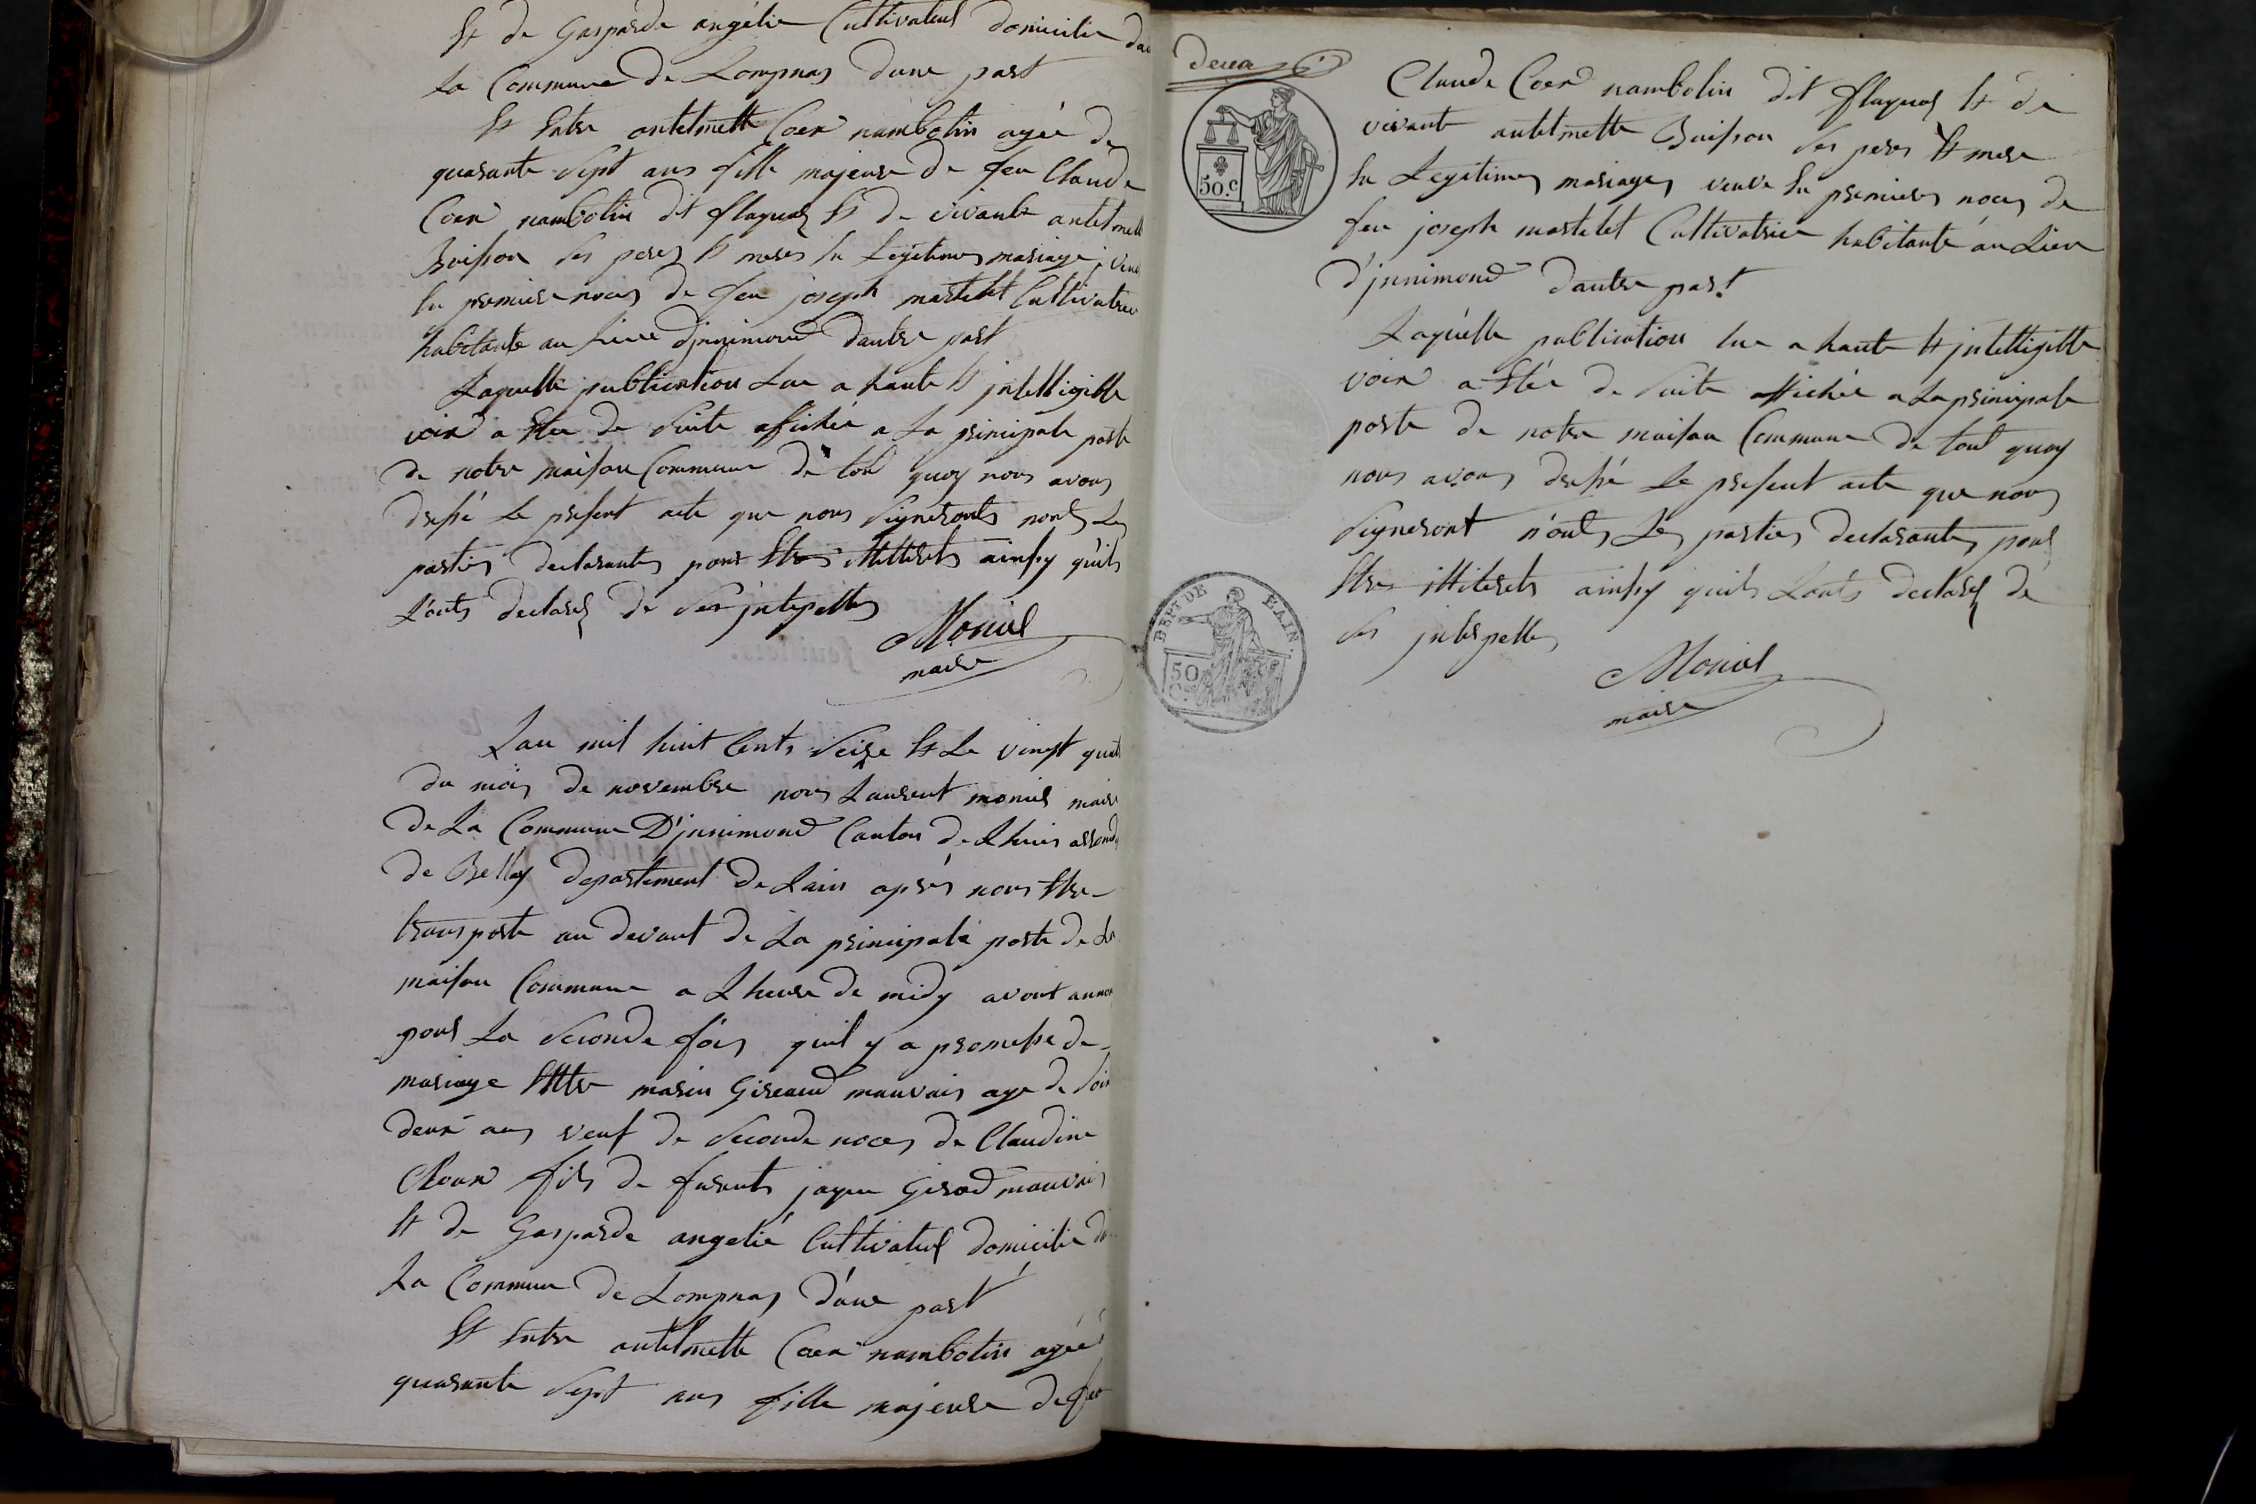 et de Gasparde angélie Cultivateur domicilie
La Commune de Lompnas dune part
Et Entre antelmette Coer nambotin agée de
quarante Sept ans fille majeure de feu Claude
Coer nambotin dit flaques Et de vivante
Buisson Ses peres Et meres En Legitimes mariage
En premiere noces de feu joseph martelet
habitante au Lieu Djnnimond dautre part
Laquelle publication Lue a haute Et jntelligible
voix a Etee de Suite affichée a La principale porte
de notre maison Commune de tout quoy nous avons
dressé Le present acte que nous Signeronts nonts Les
parties declarantes pour Etre illitterets ainsy quils
Lonts declarez de Ses jnterpelles
Moniel
maire
Lan mil huit Cents Seize Et Le vingt
du mois de novembre nous Laurent moniel maire
de La Commune D'jnnimond Canton de Lhuis
de Belley departement de Lain après nous Etre
transporte au devant de La principale porte de La
maison Commune a Lheure de midy avont
pour La Seconde fois quil y a promesse de
mariage Entre marin Gireaud mauvais age de
deux ans veuf de Seconde noces de Claudine
fils de jaque Girod mauvais
Et de Gasparde angelié Cultivateur domicilie
La Commune de Lompnas d'une part
Et Entre antelmette Coer nambotin agée
quarante Sept ans fille majeure de feu
deux
50.c
Claude Coer nambotin dit flaques Et de
vivante antelmette Buisson Ses peres Et mere
En Legitimes mariages veuve En premieres noces de
feu joseph martelet Cultivatrice habitante au Lieu
d'jnnimond dautre part
Laquelle publication lue a haute Et jntelligible
voix a Etée de Suite affichée a La principale
porte de notre maison Commune de tout quoy
nous avons dressé Le present acte que nous
Signeront n'onts Les parties declarantes pour
Etre illiterets ainsy quils Lonts declarez de
Ses jnterpelles
Moniel
maire
DEPT DE L'AIN.
50